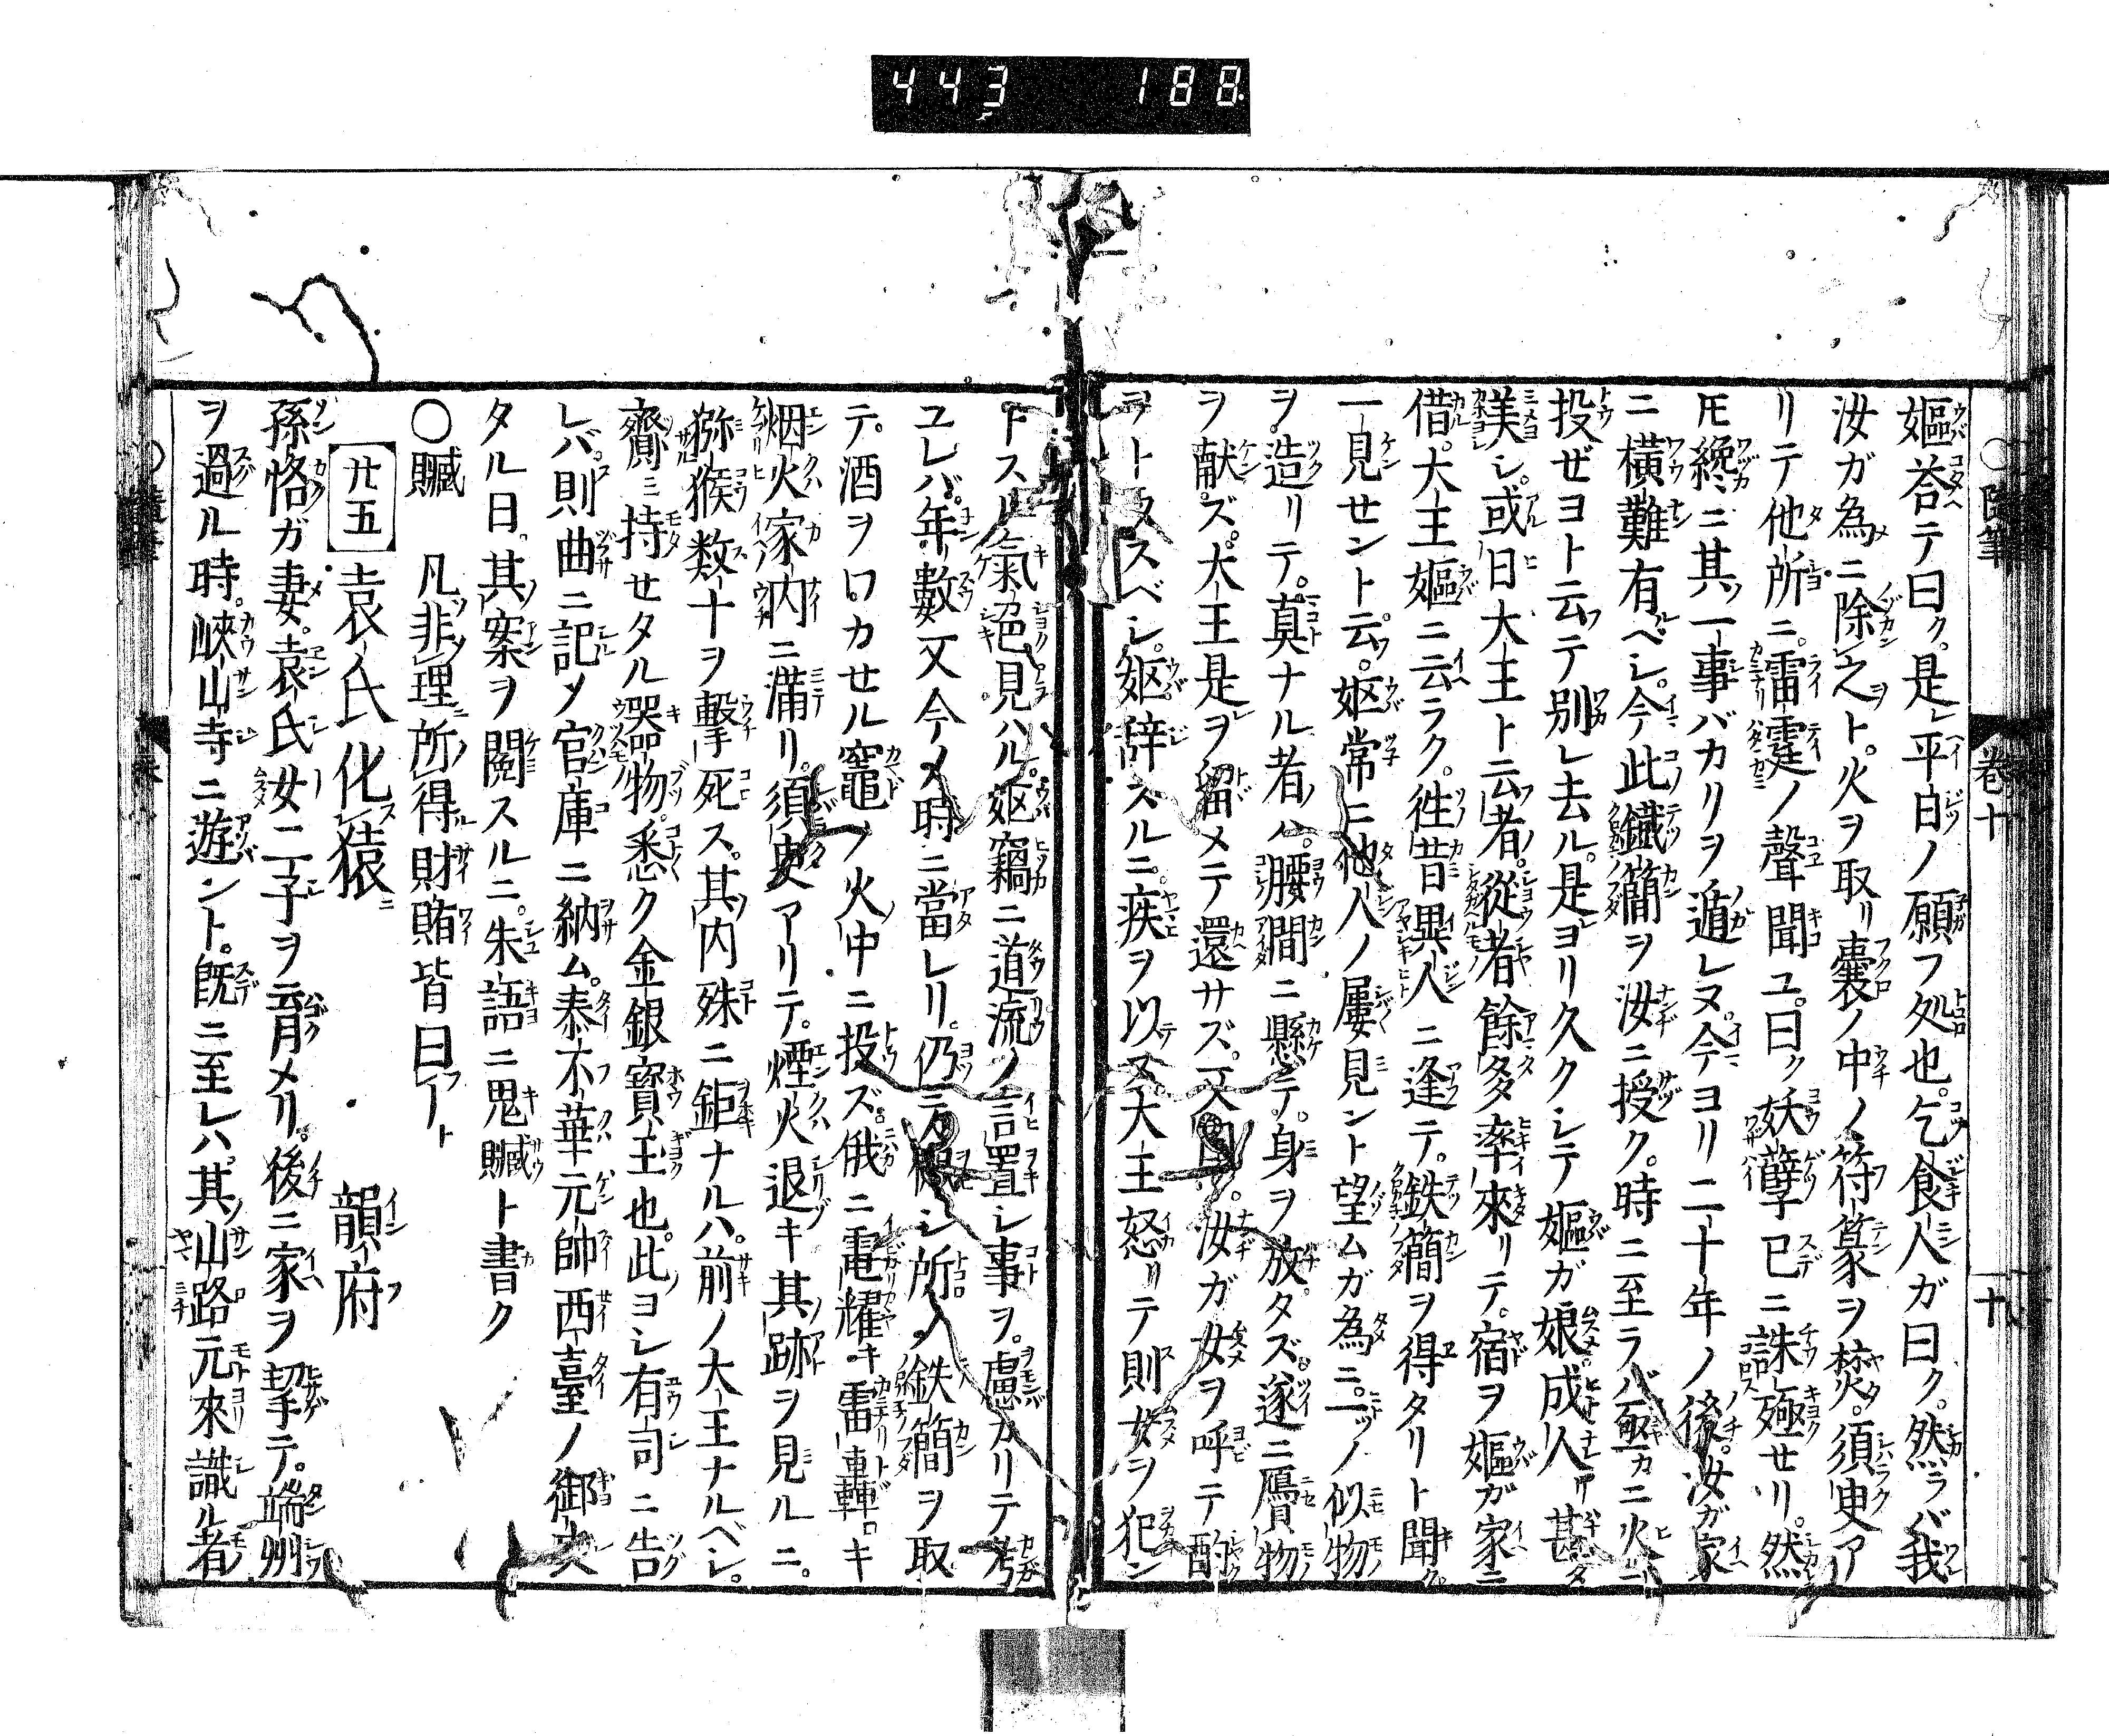 443 188
○隨筆 卷十 十八
嫗荅テ曰ク。是レ平白ノ願フ処也。乞食人ガ曰ク。然ラバ我
汝ガ為ニ除之ト。火ヲ取リ嚢ノ中ノ符篆ヲ焚。須臾ア
リテ他所ニ。雷霆ノ聲聞ユ。曰ク妖孽已ニ誅殛セリ。然
𪜈纔ニ其一事バカリヲ遁レヌ。今ヨリ二十年ノ後。汝ガ家
ニ横難有ベシ。今此鐵簡ヲ汝ニ授ク。時ニ至ラバ亟カニ火ニ
投ゼヨト云テ別レ去ル。是ヨリ久クシテ嫗ガ娘成人
美シ。或日大王ト云者。從者餘多率來リテ。宿ヲ嫗ガ家ニ
借。大王嫗ニ云ラク。徃昔異人ニ逢テ。鉄簡ヲ得タリト聞ク。
一見セント云。嫗常ニ他人ノ屢見ント望ムガ為ニ。一ツノ似物
ヲ造リテ。真ナル者ハ。腰間ニ懸テ。身ヲ放タズ。遂ニ贋物
ヲ献ズ。大王是ヲ留メテ還サズ。汝ガ女ヲ呼テ酌
ヲトラスベシ。嫗辞スルニ。疾ヲ以ス。大王怒リテ則女ヲ犯ン
トスル氣色見ハル。嫗竊ニ道流ノ言置シ事ヲ。慮カリテ考
ユレバ。年數又今メ時ニ當レリ。仍テ所ノ鉄簡ヲ取
テ。酒ヲワカセル竈ノ火中ニ投ズ。俄ニ電耀キ雷轟キ
烟火家内ニ満リ。須臾アリテ。煙火退キ其跡ヲ見ルニ。
猕猴数十ヲ撃死ス。其内殊ニ鉅ナルハ。前ノ大王ナルベシ。
齎ニ持セタル器物。悉ク金銀寶玉也。此ヨシ有司ニ告
レバ。則曲ニ記メ官庫ニ納ム。泰不華元帥西臺ノ御史
タル日。其案ヲ閲スルニ。朱語ニ鬼贓ト書ク
○贓 凡非理所得財賄皆曰フト
廿五 袁氏化猿 韻府
孫恪ガ妻。袁氏女二子ヲ育メリ。後ニ家ヲ挈テ。端州
ヲ過ル時。峽山寺ニ遊ント。既ニ至レハ。其山路元來識ル者